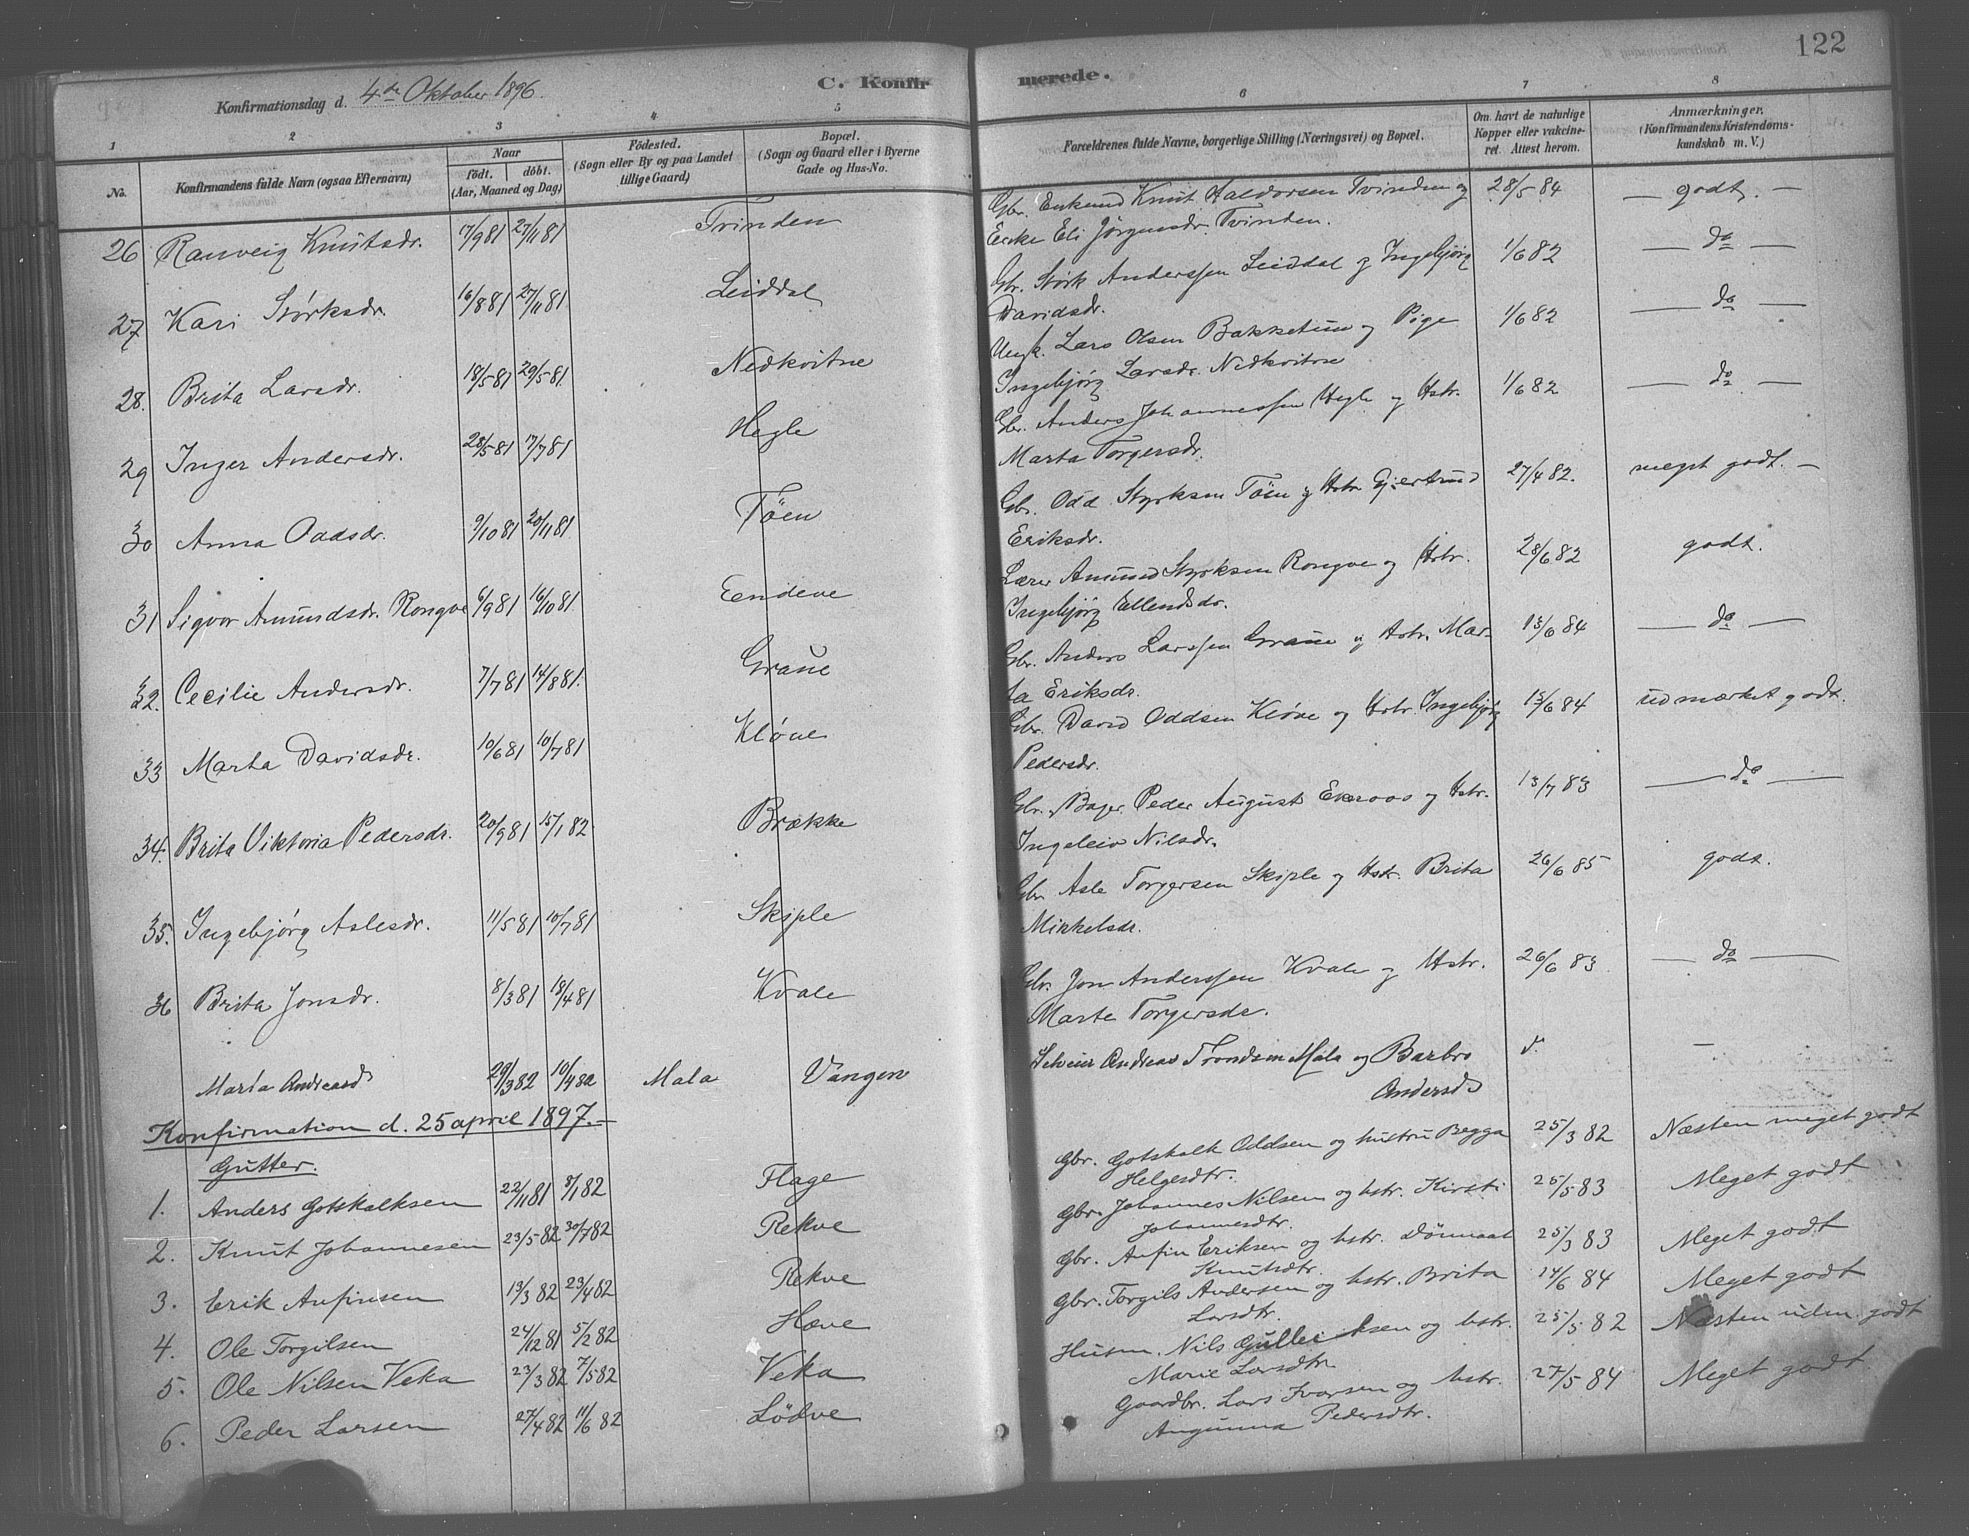 122
Konfirmationsdag d. 4de Oktober 1896.
C. Konfirmerede.
1 2 3 4 5 6 7 8
No. Konfirmandens fulde Navn (ogsaa Efternavn) Naar født. døbt. (Aar, Maaned og Dag) Fødested. (Sogn eller By og paa Landet tillige Gaard) Bopæl. (Sogn og Gaard eller i Byerne Gade og Hus-No. Forældrenes fulde Navne, borgerlige Stilling (Næringsvei) og Bopæl. Om havt de naturlige Kopper eller vakcineret. Attest herom. Anmærkninger. (Konfirmandens Kristendomskundskab m. V.)
26 Ranveig Knutsdr. 17/9 81 27/11 81 Tvinden Gbr. Enkemd Knut Haldorsen Tvinden og 28/5 84 — godt. —
Enke Eli Jørgensdr. Tvinden.
27 Kari Størksdr. 16/8 81 27/11 81 Leiddal Gbr. Størk Anderssen Leiddal og Ingebjørg 1/6 82 — do —
Davidsdr.
28. Brita Larsdr. 18/5 81 29/5 81. Nedkvitne Ungk. Lars Olsen Bakketun og Pige 1/6 82 — do —
Ingebjørg Larsdr. Nedkvitne
29 Inger Andersdr. 28/5 81 17/7 81 Hegle Gbr. Anders Johannessen Hegle og Hstr. 1/6 82 — do —
Marta Torgersdr.
30 Anna Oddsdr. 9/10 81 20/11 81 Tøen Gbr. Odd Styrksen Tøen og Hstr Gjertrud 27/4 82. meget godt. —
Eriksdr.
31 Sigvor Amundsdr. Rongve 6/9 81 16/10 81. Eendeve Lærer Amund Styrksen Rongve og Hstr. 28/6 82 godt.
Ingebjørg Ellendsdr.
32. Cecilie Andersdr. 7/7 81 14/8 81. Graue Gbr. Anders Larssen Graue og Hstr. Mar- 13/6 84 — do —
ta Eriksdr.
33 Marta Davidsdr. 10/6 81 10/7 81 Kløve Gbr. David Oddsen Kløve og Hstr. Ingebjørg 13/6 84 udmærket godt.
Pedersdr.
34. Brita Viktoria Pedersdr. 20/9 81 15/1 82. Brække Gbr. Bager Peder August Ekroos og Hstr. 13/7 83 — do —
Ingeleiv Nilsdr.
35. Ingebjørg Aslesdr. 11/5 81 10/7 81 Skjple Gbr Asle Torgersen Skjple og Hstr. Brita 26/6 85 godt.
Mikkelsdr.
36 Brita Jonsdr. 8/3 81 18/4 81 Kvale Gbr. Jon Anderssen Kvale og Hstr. 26/6 83 — do —
Marte Torgersdr.
Marta Andreasd 29/3 82 10/4 82 Mala Vangen Selveier Andreas Trondsen Mala og Barbro d. —
Andersd
Konfirmation d. 25 april 1897. —
Gutter.
1. Anders Gotskalksen 22/11 81 8/1 82 Flage Gbr. Gotskalk Oddsen og hustru Begga 25/3 82 Næsten meget godt
Helgesdtr.
2. Knut Johannesen 23/5 82 30/7 82 Rekve Gbr. Johannes Nilsen og hstr. Kirsti 25/5 83 Meget godt
Johannesdtr.
3. Erik Anfinsen 13/3 82 23/4 82 Rekve Gbr. Anfin Eriksen og hstr. Dönnaat 25/3 83 Meget godt
Knutsdtr.
4. Ole Torgilsen 24/12 81 5/2 82 Hæve Gbr. Torgils Andersen og hstr. Brita 14/6 84 Meget godt
Larsdtr.
5. Ole Nilsen Veka 23/3 82 7/5 82 Veka Husm. Nils Gulleiksen og hstr. 25/5 82 Næsten udm. godt
Marie Larsdtr.
6. Peder Larsen 27/4 82 11/6 82 Lødve Gaardbr. Lars Ivarsen og hstr. 27/5 84 Meget godt.
Angunna Pedersdtr.